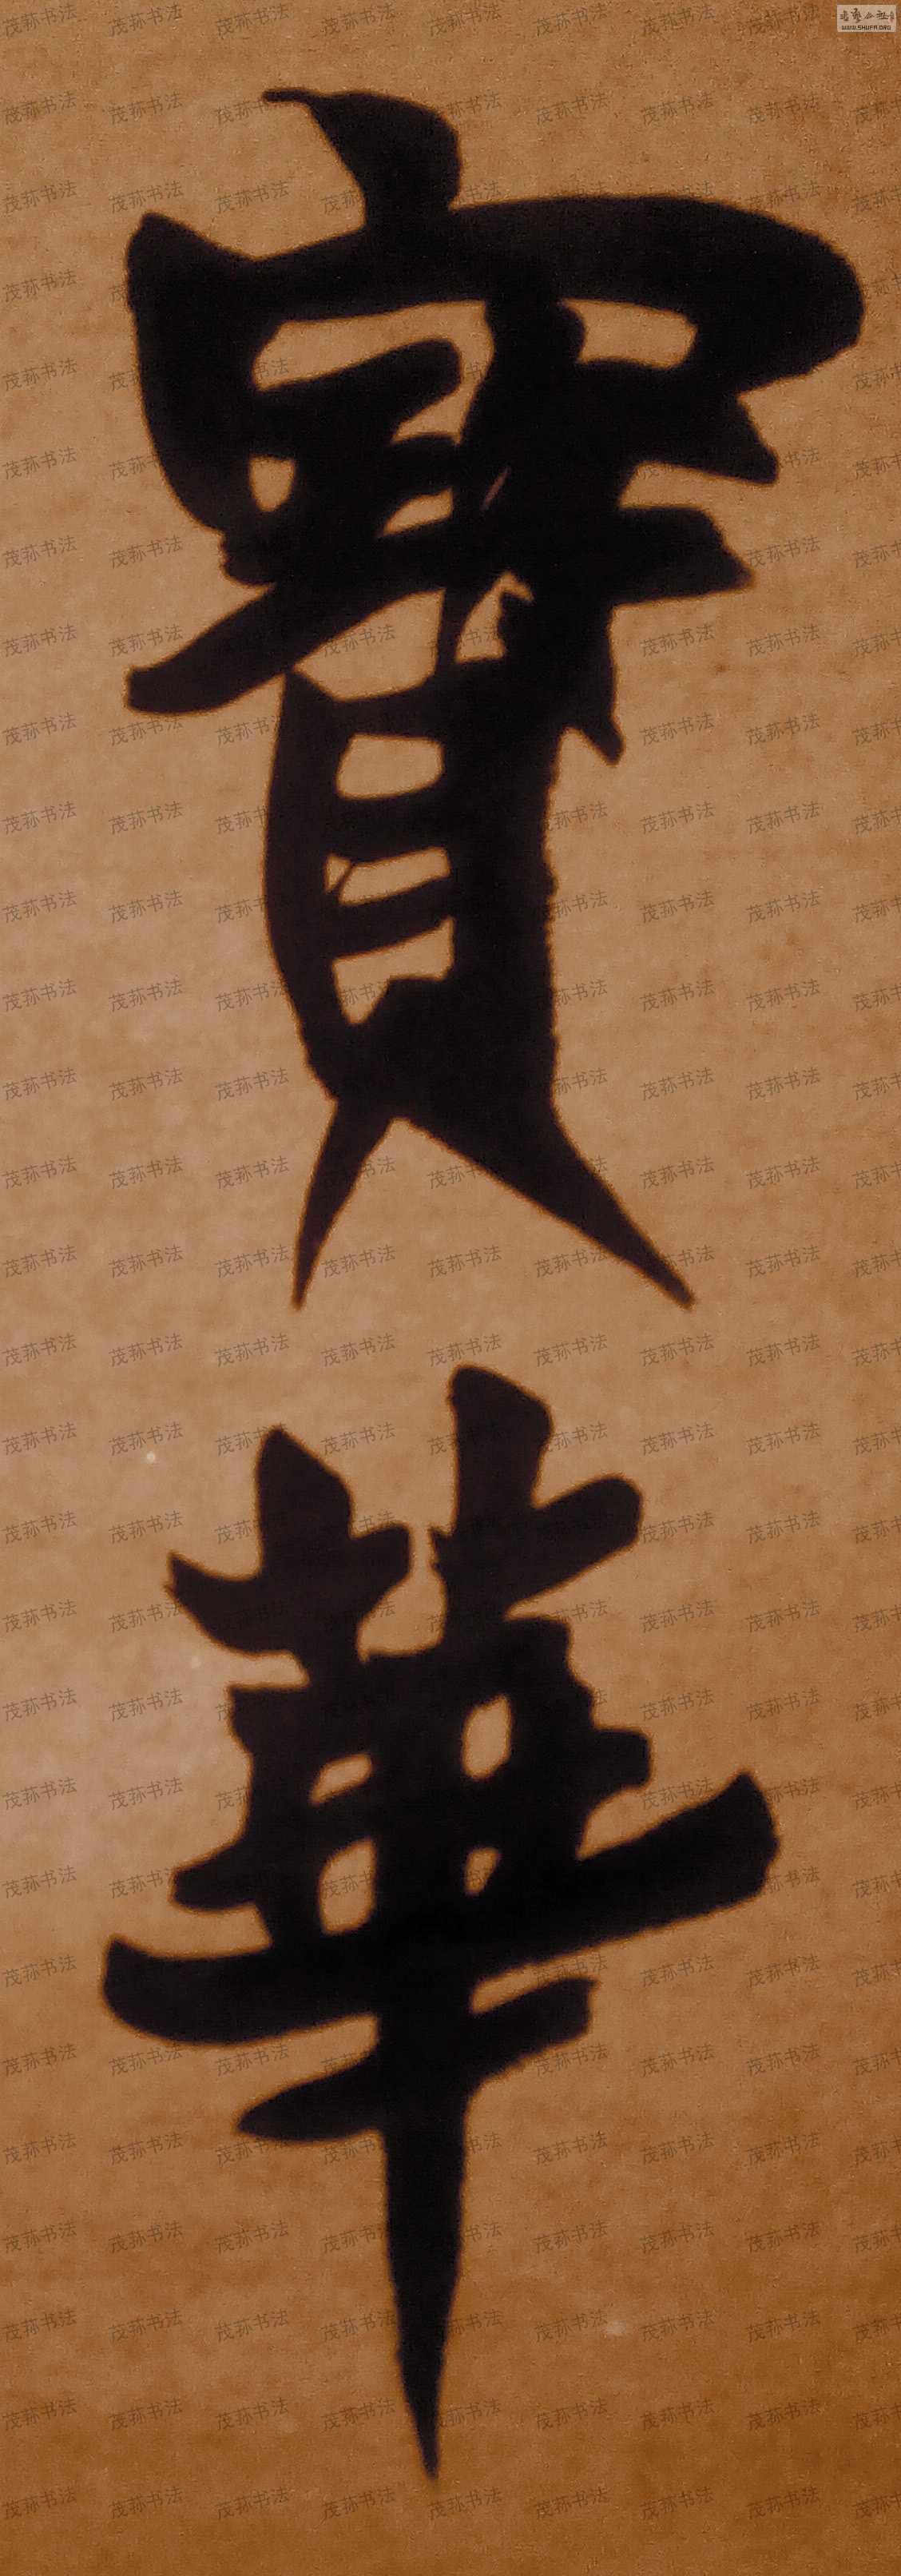 寶華
茂荪书法
WWW.SHUFA.ORG